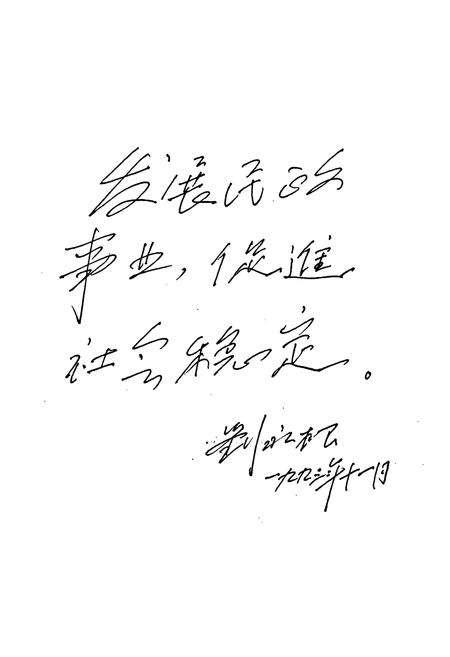 发展民政
事业，促進
社会稳定。
劉永根
一九九三年十一月